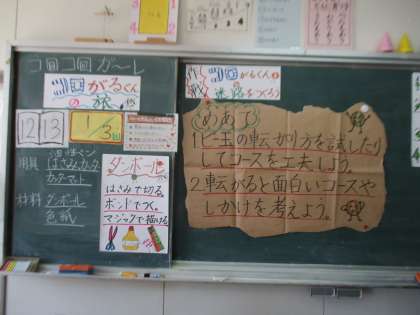 コロコロガーレ
コロがるくん
の旅
12 13
1/3
用具
はさみ、カッター
カッターマット
材料 ダンボール
色紙
ダンボール
はさみで切る。
ボンドでつく。
マジックで描ける。
作戦
コロがるくん
迷路をつくろう
めあて
1ビー玉の転がり方を試したり
してコースを工夫しよう。
2転がると面白いコースや
しかけを考えよう。